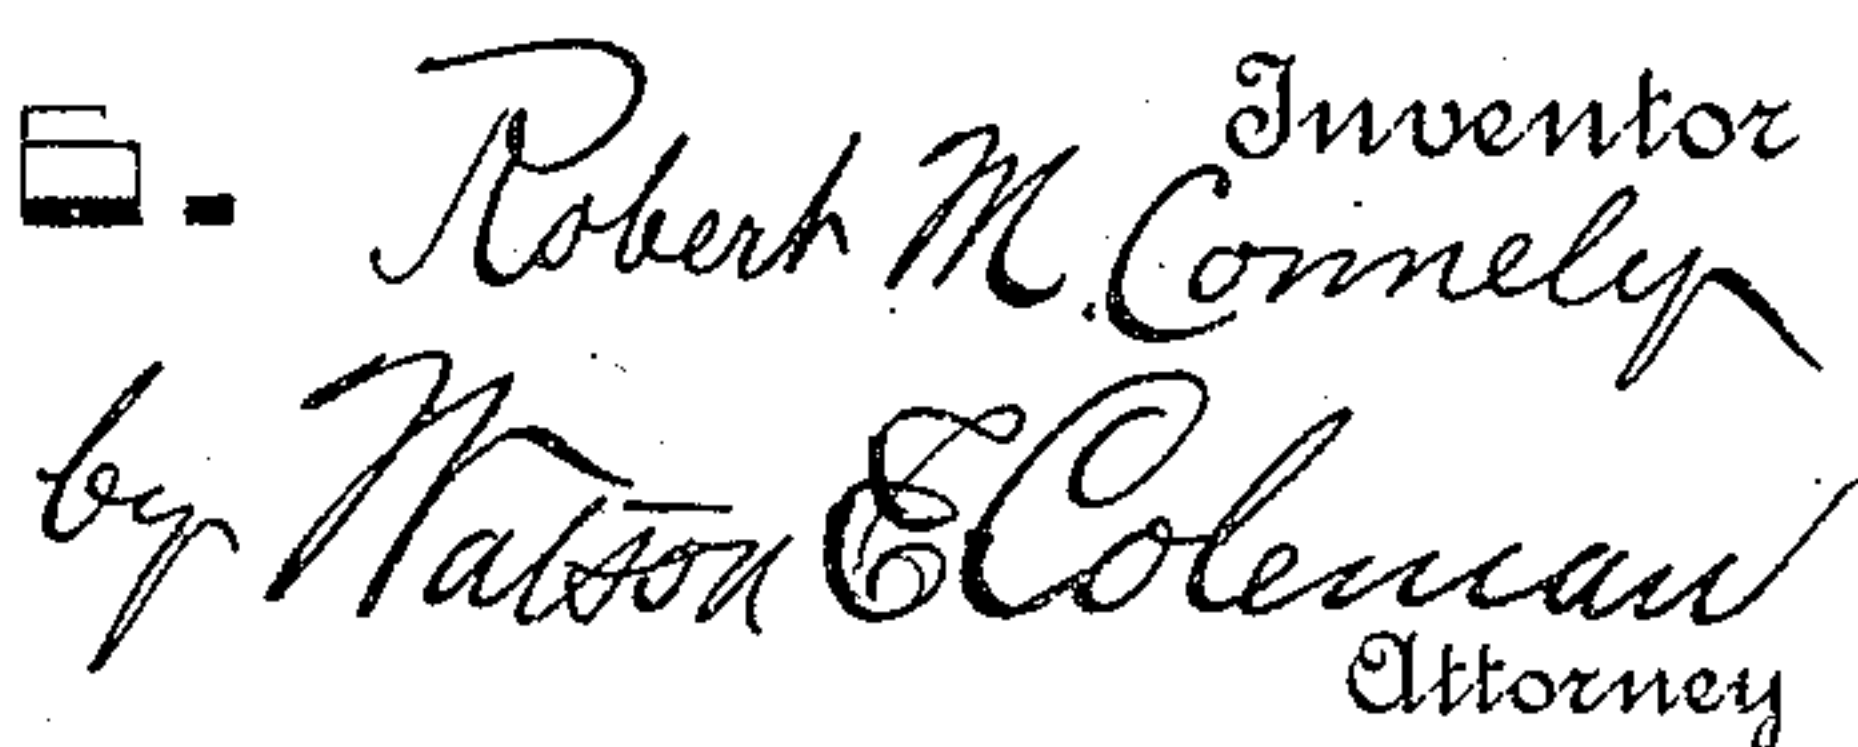 Inventor
Robert M. Connely
by Watson E. Coleman
Attorney